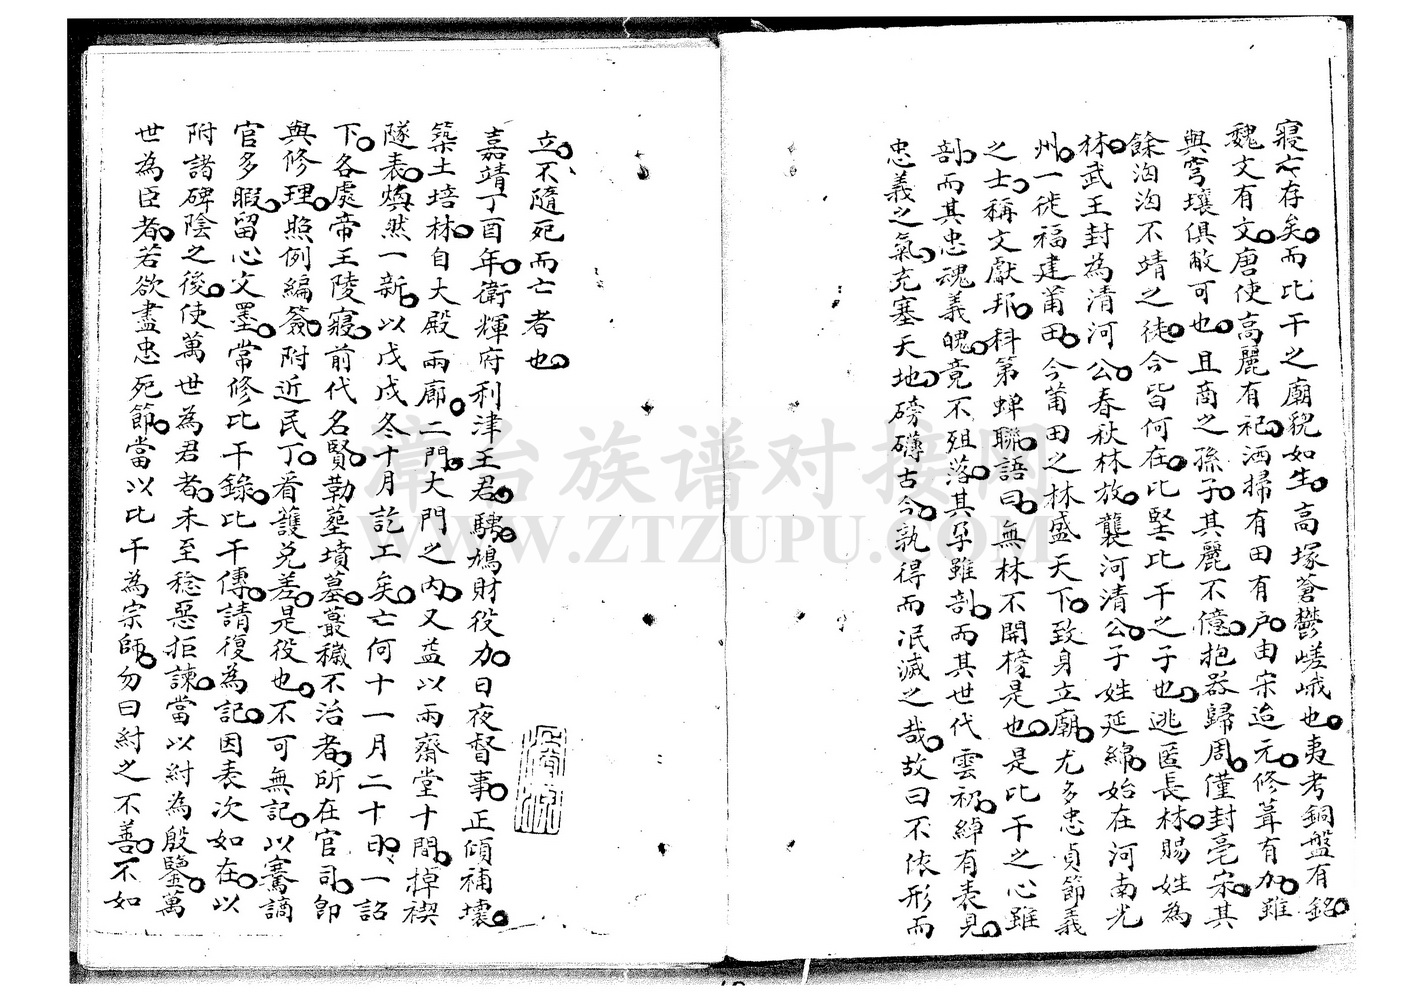 寢亡存矣而比干之廟貌如生高塚蒼鬱嵯峨也夷考銅盤有銘
魏文有文唐使高麗有祀洒掃有田有户由宋迨元修葺有加雖
與穹壤俱敝可也且商之孫子其麗不億抱器歸周僅封亳宋其
餘洶洶不靖之徒今皆何在比堅比干之子也逃匿長林賜姓為
林武王封為清河公春秋林放襲河清公子姓延綿始在河南光
州一徙福建莆田今莆田之林盛天下致身立廟尤多忠貞節義
之士稱文獻邦科第蟬聯語曰無林不開榜是也是比干之心雖
剖而其忠魂義魄竟不殂落其孕雖剖而其世代雲礽綽有表見
忠義之氣充塞天地磅礴古今孰得而泯滅之哉故曰不依形而
立不隨死而亡者也
嘉靖丁酉年衛輝府利津王君騁鳩財役加日夜督事正傾補壞
築土培林自大殿兩廊二門大門之内又益以兩齋堂十間棹禊
隧表煥然一新以戊戌冬十月訖工矣亡何十一月二十日一詔
下各處帝王陵寢前代名賢勒墓墳墓蕞穢不治者所在官司即
與修理照例編簽附近民丁看護免差是役也不可無記以騫謫
官多暇留心文墨常修比干錄比干傳請復為記因表次如在以
附諸碑陰之後使萬世為君者未至稔惡拒諫當以紂為殷鑒萬
世為臣者若欲盡忠死節當以比干為宗師勿曰紂之不善不如
章台族谱对接网
WWW.ZTZUPU.COM